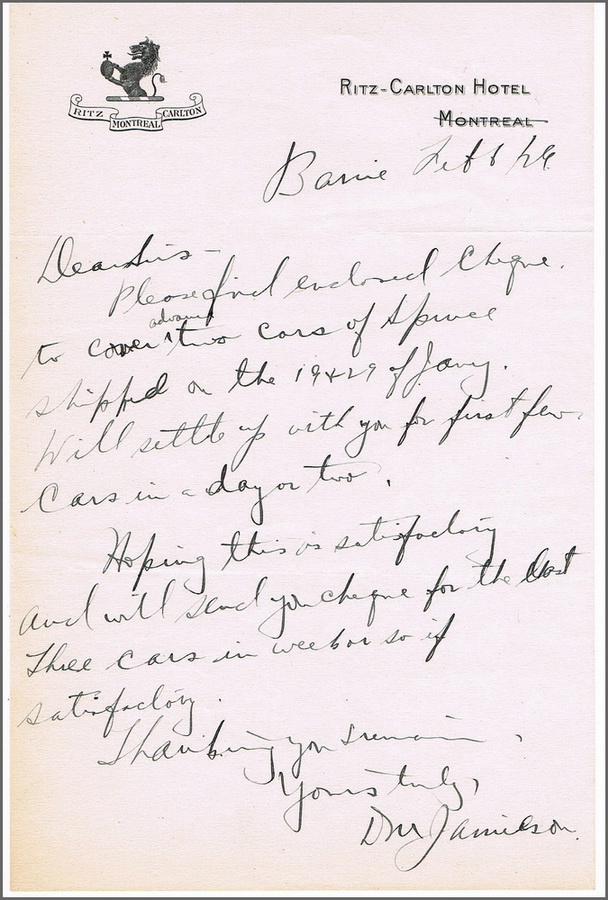 RITZ MONTREAL CARLTON
RITZ-CARLTON HOTEL
MONTREAL
Barrie Feb 6/29.
Dear Sirs -
Please find enclosed cheque.
advance
to cover two cars of Spruce
shipped on the 19 & 29 of Jany.
Will settle up with you for first few
cars in a day or two.
Hoping this is satisfactory
and will send you cheque for the last
three cars in week or so if
satisfactory.
Thanking you I remain,
Yours truly,
Jamieson.